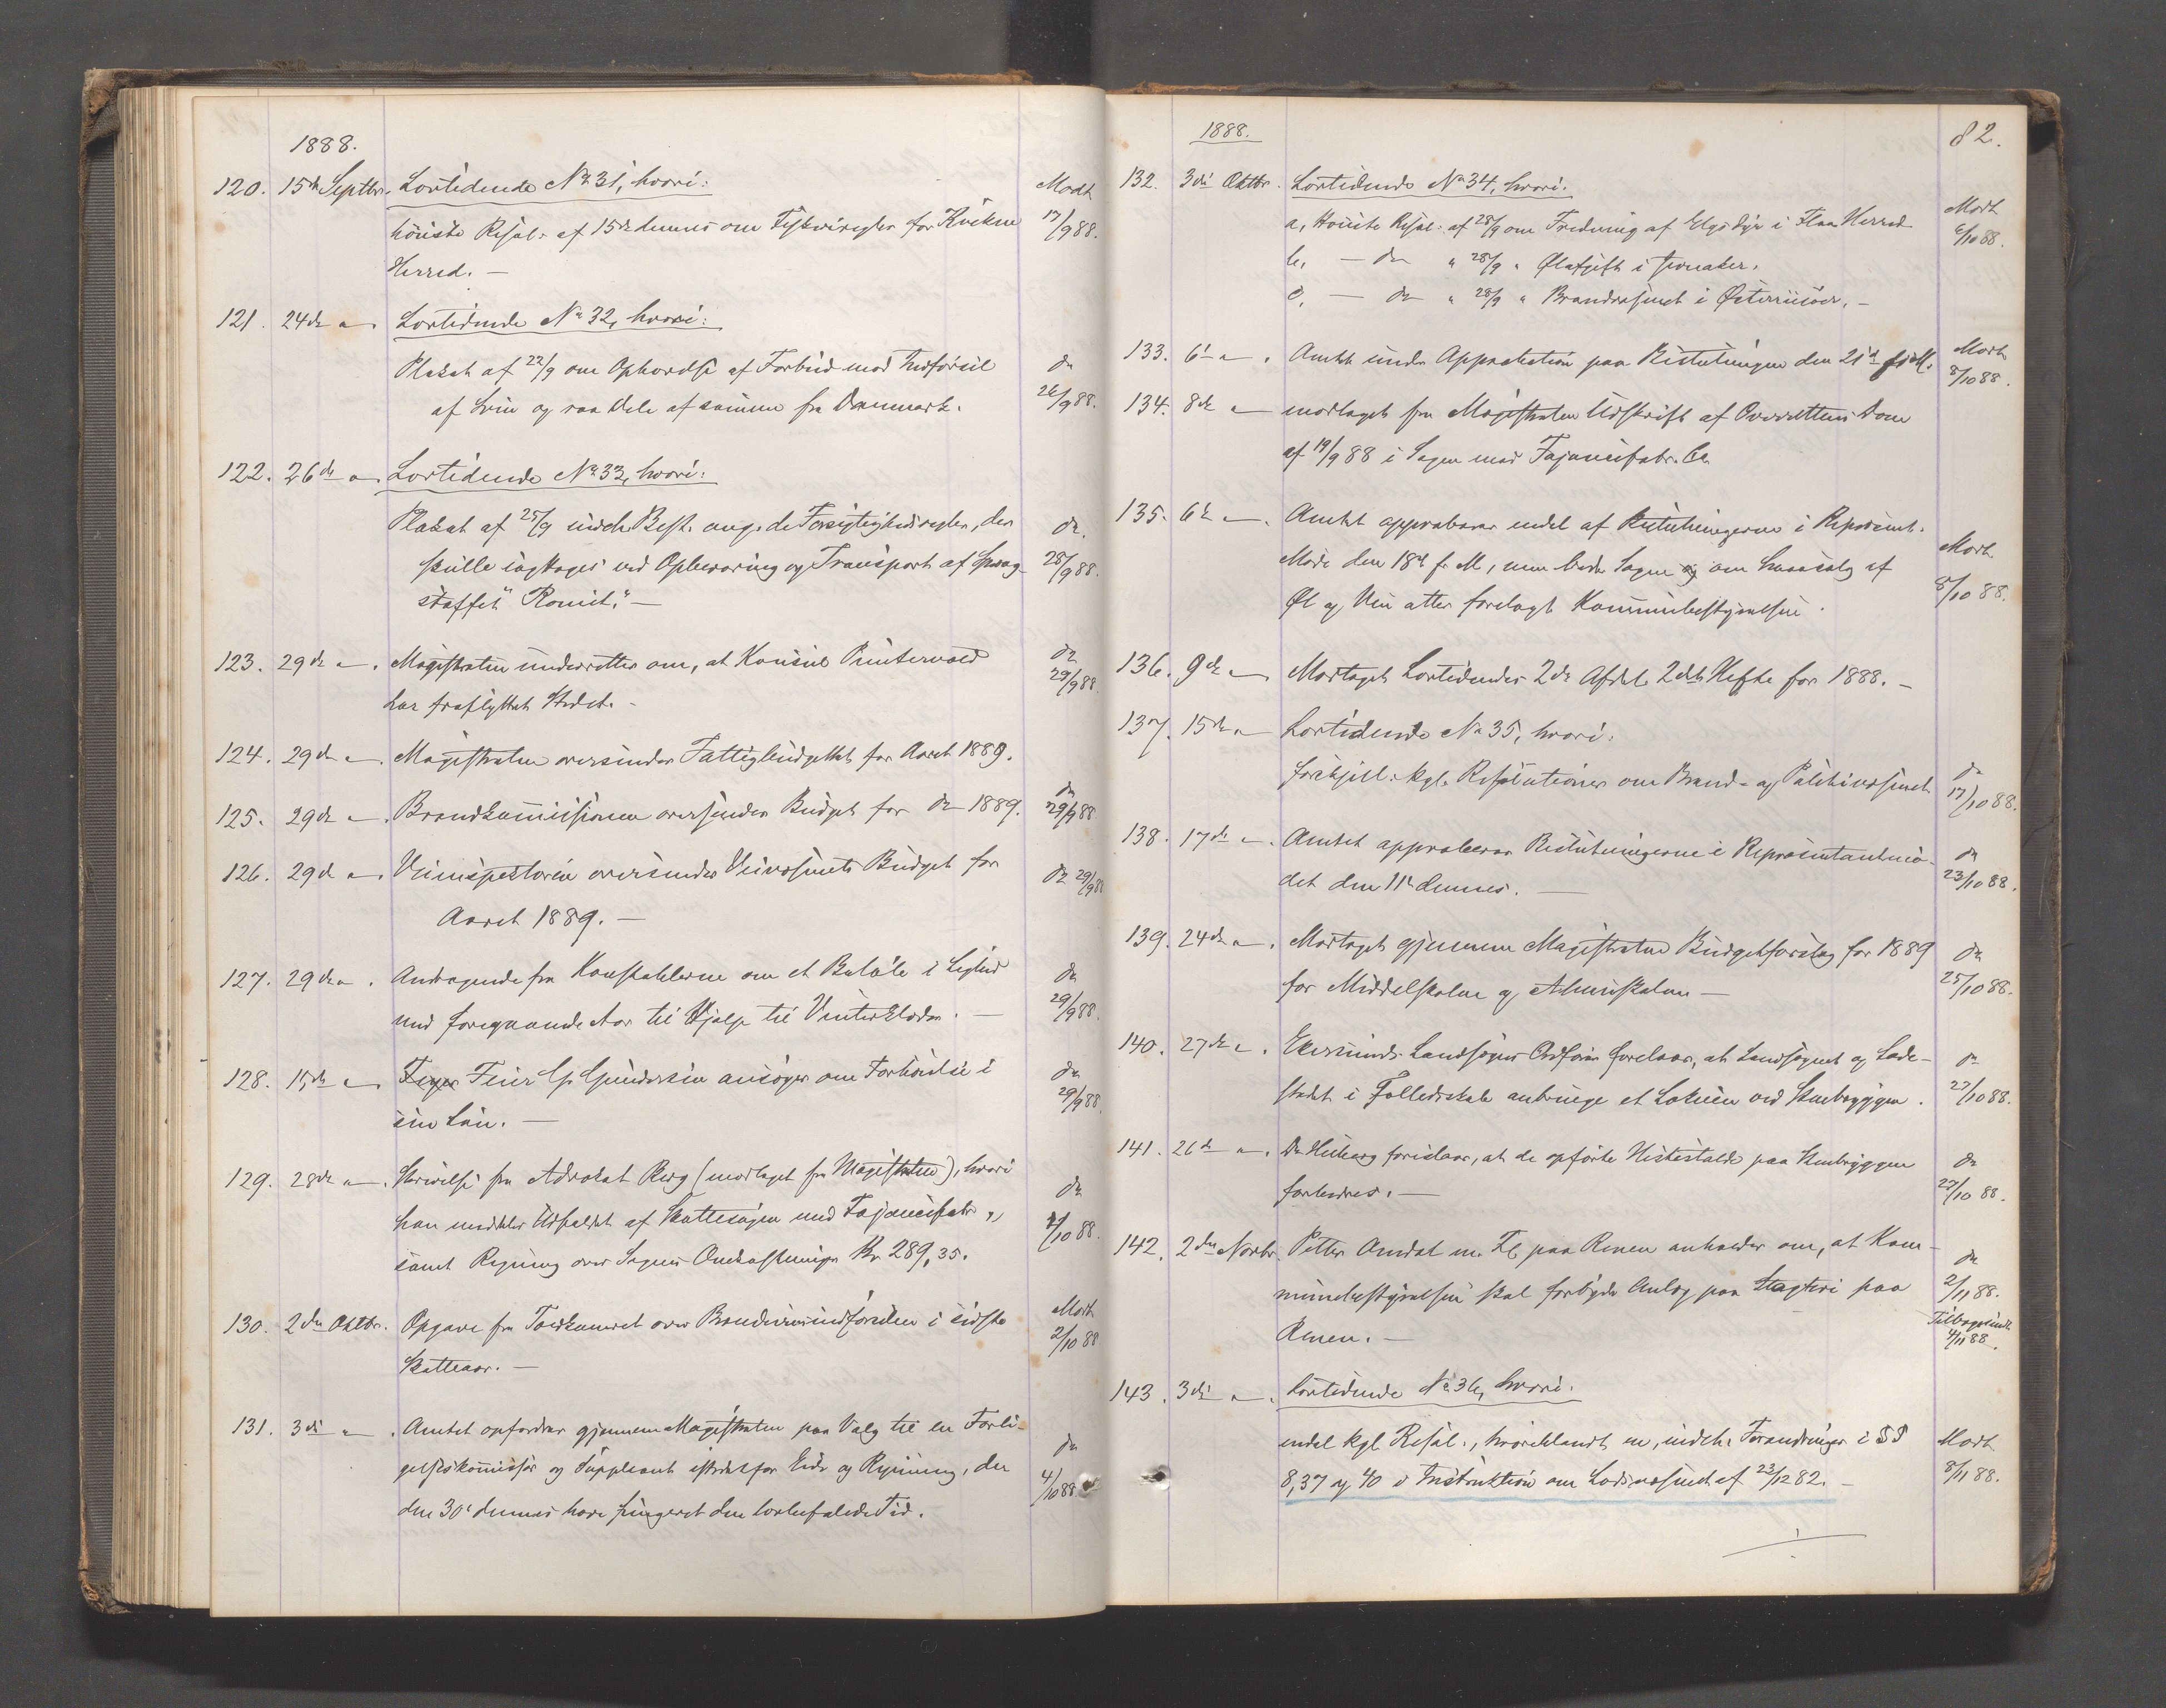 1888.
120. 15de Septbr. Lovtidende No 31, hvori: Modt
höieste Resol. af 15de dennes om Fiskeriregler for Kvikne 17/9 88.
Herred. —
121. 24de " . Lovtidende No 32, hvori:
Plakat af 22/9 om Ophordse af Forbud mod Indförsel do
af Sviin og raa Dele af samme fra Danmark. 26/9 88.
122. 26de " . Lovtidende No 33, hvori:
Plakat af 25/9 indeh. Best. ang. de Forsigtighedsregler, der do.
skulle iagttages ved Opbevaring og Transport af Spræng- 28/9 88.
stoffet "Romit." —
123. 29de " . Magistraten underretter om, at Konsul Puntervold do
har fraflyttet Stedet. - 29/9 88.
124. 29de " . Magistraten oversender Fattigbudgettet for Aaret 1889.
125. 29de " . Brandkommissionen oversender Budget for do 1889. do 29/9 88
126. 29de " . Veiinspektören oversender Veivæsenets Budget for do 29/9 88
Aaret 1889. —
127. 29de " . Andragende fra Konstablerne om et Belöb i Lighed do
med foregaaende Aar til Hjælp til Vinterklæder. — 29/9 88.
128. 15de " Feier G. Gundersen ansöger om Forhöielse i do
sin Lön. — 29/9 88.
129. 28de " . Skrivelse fra Advokat Berg (modtaget fra Magistraten), hvori do
han meddeler Udfaldet af Skattesagen med Fajancefabr., 2/10 88.
samt Regning over Sagens Omkostninger Kr. 289,35.
130. 2den Oktbr. Opgave fra Toldkammeret over Brændeviinsindförselen i sidste Modt
Skatteaar. — 2/10 88
131. 3die " . Amtet opfordrer gjennem Magistraten paa Valg til en Forli- do
gelseskommissær og Suppleant istedetfor Eide og Rynning, der 4/10 88
den 30te dennes have fungeret den lovbefalede Tid.
1888. 82.
132. 3die Oktbr. Lovtidende No 34, hvori:
a, Höieste Resol. af 28/9 om Fredning af Elgsdyr i Flaa Herred Modt
b, — do " 28/9 " Ölafgift i 6/10 88.
c, — do " 28/9 " Brandvæsenet i Österriisöer. —
133. 6te " . Amtets Approbation paa Beslutningen den 21de f. M. Modt 8/10 88.
134. 8de " modtaget fra Magistraten Udskrift af Overrettens Dom
af 19/9 88 i Sagen mod Fajancefabr. Co
135. 6te " . Amtet approberer endel af Beslutningerne i Repræsent.
Möde den 18de f. M., men Sagen om Smaasalg af Modt
Öl og Viin atter forelagt Kommunebestyrelsen. 8/10 88.
136. 9de " Modtaget Lovtidendes 2de Afdel. 2det Hefte for 1888. —
137. 15de " Lovtidende No 35, hvori:
forskjell. kgl. Resolutioner om Brand- og Politivæsenet do 17/10 88.
138. 17de " . Amtet approberer Beslutningerne i Repræsentantmö- do
det den 11te dennes. — 23/10 88.
139. 24de " . Modtaget gjennem Magistraten Budgetforslag for 1889 do
for Middelskolen og Almueskolen — 25/10 88.
140. 27de " . Ekersunds Landsogns Ordförer foreslaar, at Landsognet og Lade- do
stedet i Fællesskab anbringe et Lokum ved Skibsbryggen. 27/10 88.
141. 26de " . foreslaar, at de opförte Hestestalde paa bryggen do
forbedres. — 27/10 88.
142. 2den Novbr. Petter Omdal m. Fl. paa Renen anholder om, at Kom- do
munebestyrelsen skal forbyde Anlæg paa Slagteri paa 2/11 88.
Renen. — Tilbagesendt 4/11 88.
143. 3die " . Lovtidende No 36, hvori:
endel kgl. Resol., hvoriblandt en, indeh. Forandringer i §§ Modt
8, 37 og 40 i Instruktion om Lodsvæsenet af 23/12 82. — 8/11 88.